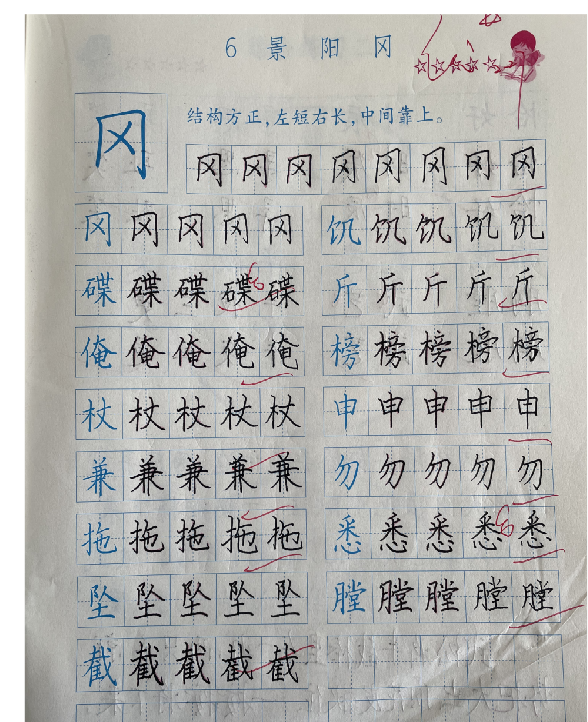 6 景 阳 冈
冈 结构方正,左短右长,中间靠上。
冈 冈 冈 冈 冈 冈 冈 冈
冈 冈 冈 冈 冈 饥 饥 饥 饥 饥
碟 碟 碟 碟 碟 斤 斤 斤 斤 斤
俺 俺 俺 俺 俺 榜 榜 榜 榜 榜
杖 杖 杖 杖 杖 申 申 申 申 申
兼 兼 兼 兼 兼 勿 勿 勿 勿 勿
拖 拖 拖 拖 拖 悉 悉 悉 悉 悉
坠 坠 坠 坠 坠 膛 膛 膛 膛 膛
截 截 截 截 截